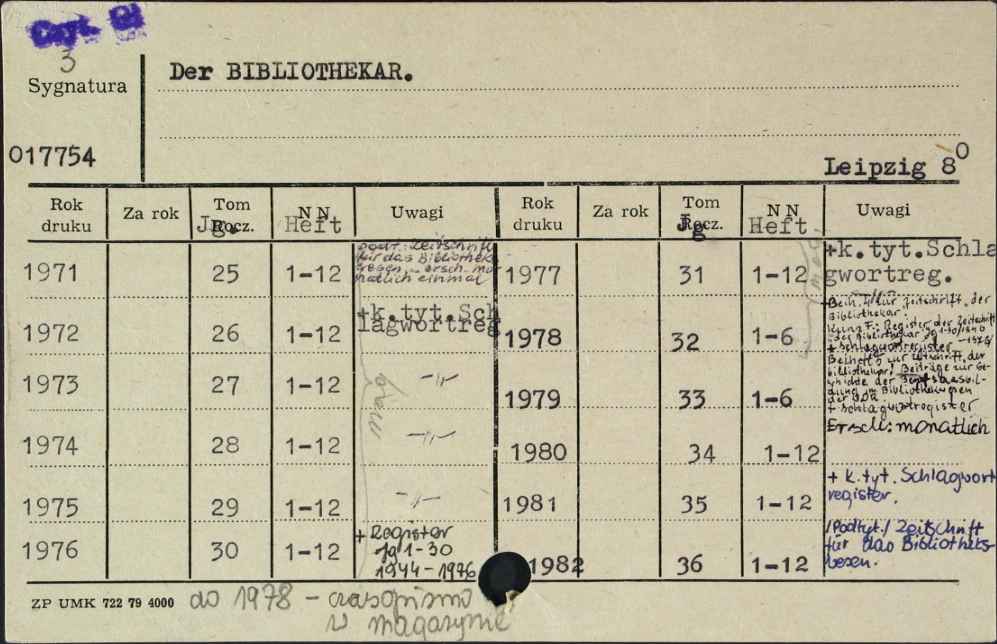 Czyt. Gł
3
Sygnatura
Der BIBLIOTHEKAR.
017754
Leipzig 8⁰
Rok druku Za rok Tom Rocz. Jg. NN Heft Uwagi Rok druku Za rok Tom Rocz. Jg. NN Heft Uwagi
1971 25 1-12 podt.: Zeitschrift
für das Bibliotheks
wesen, ersch. mo
natlich einmal
1977 31 1-12 +k.tyt.Schla
gwortreg.
1972 26 1-12 +k.tyt.Sch
lagwortreg
1978 32 1-6 Beih. zur Zeitschrift, der
Bibliothekar:
Register der Zeitschrift
der Bibliothekar Jg 1-30/1946
-1976/
+ Schlagwortregister
1973 27 1-12 -"-
1979 33 1-6 Beiheft zur Zeitschrift, der
Bibliothekar/ Beiträge zur Ge-
der
dung im Bibliothekswesen
der DDR
+ Schlagwortregister
1974 28 1-12 -"-
1980 34 1-12 Ersch: monatlich
mag.
1975 29 1-12 -"-
1981 35 1-12 + k.tyt. Schlagwort
register.
1976 30 1-12 + Register
Jg 1-30
1944-1976
1982 36 1-12 /Podtyt./ Zeitschrift
für das Bibliotheks-
wesen.
ZP UMK 722 79 4000
do 1978 - czasopismo
w magazynie